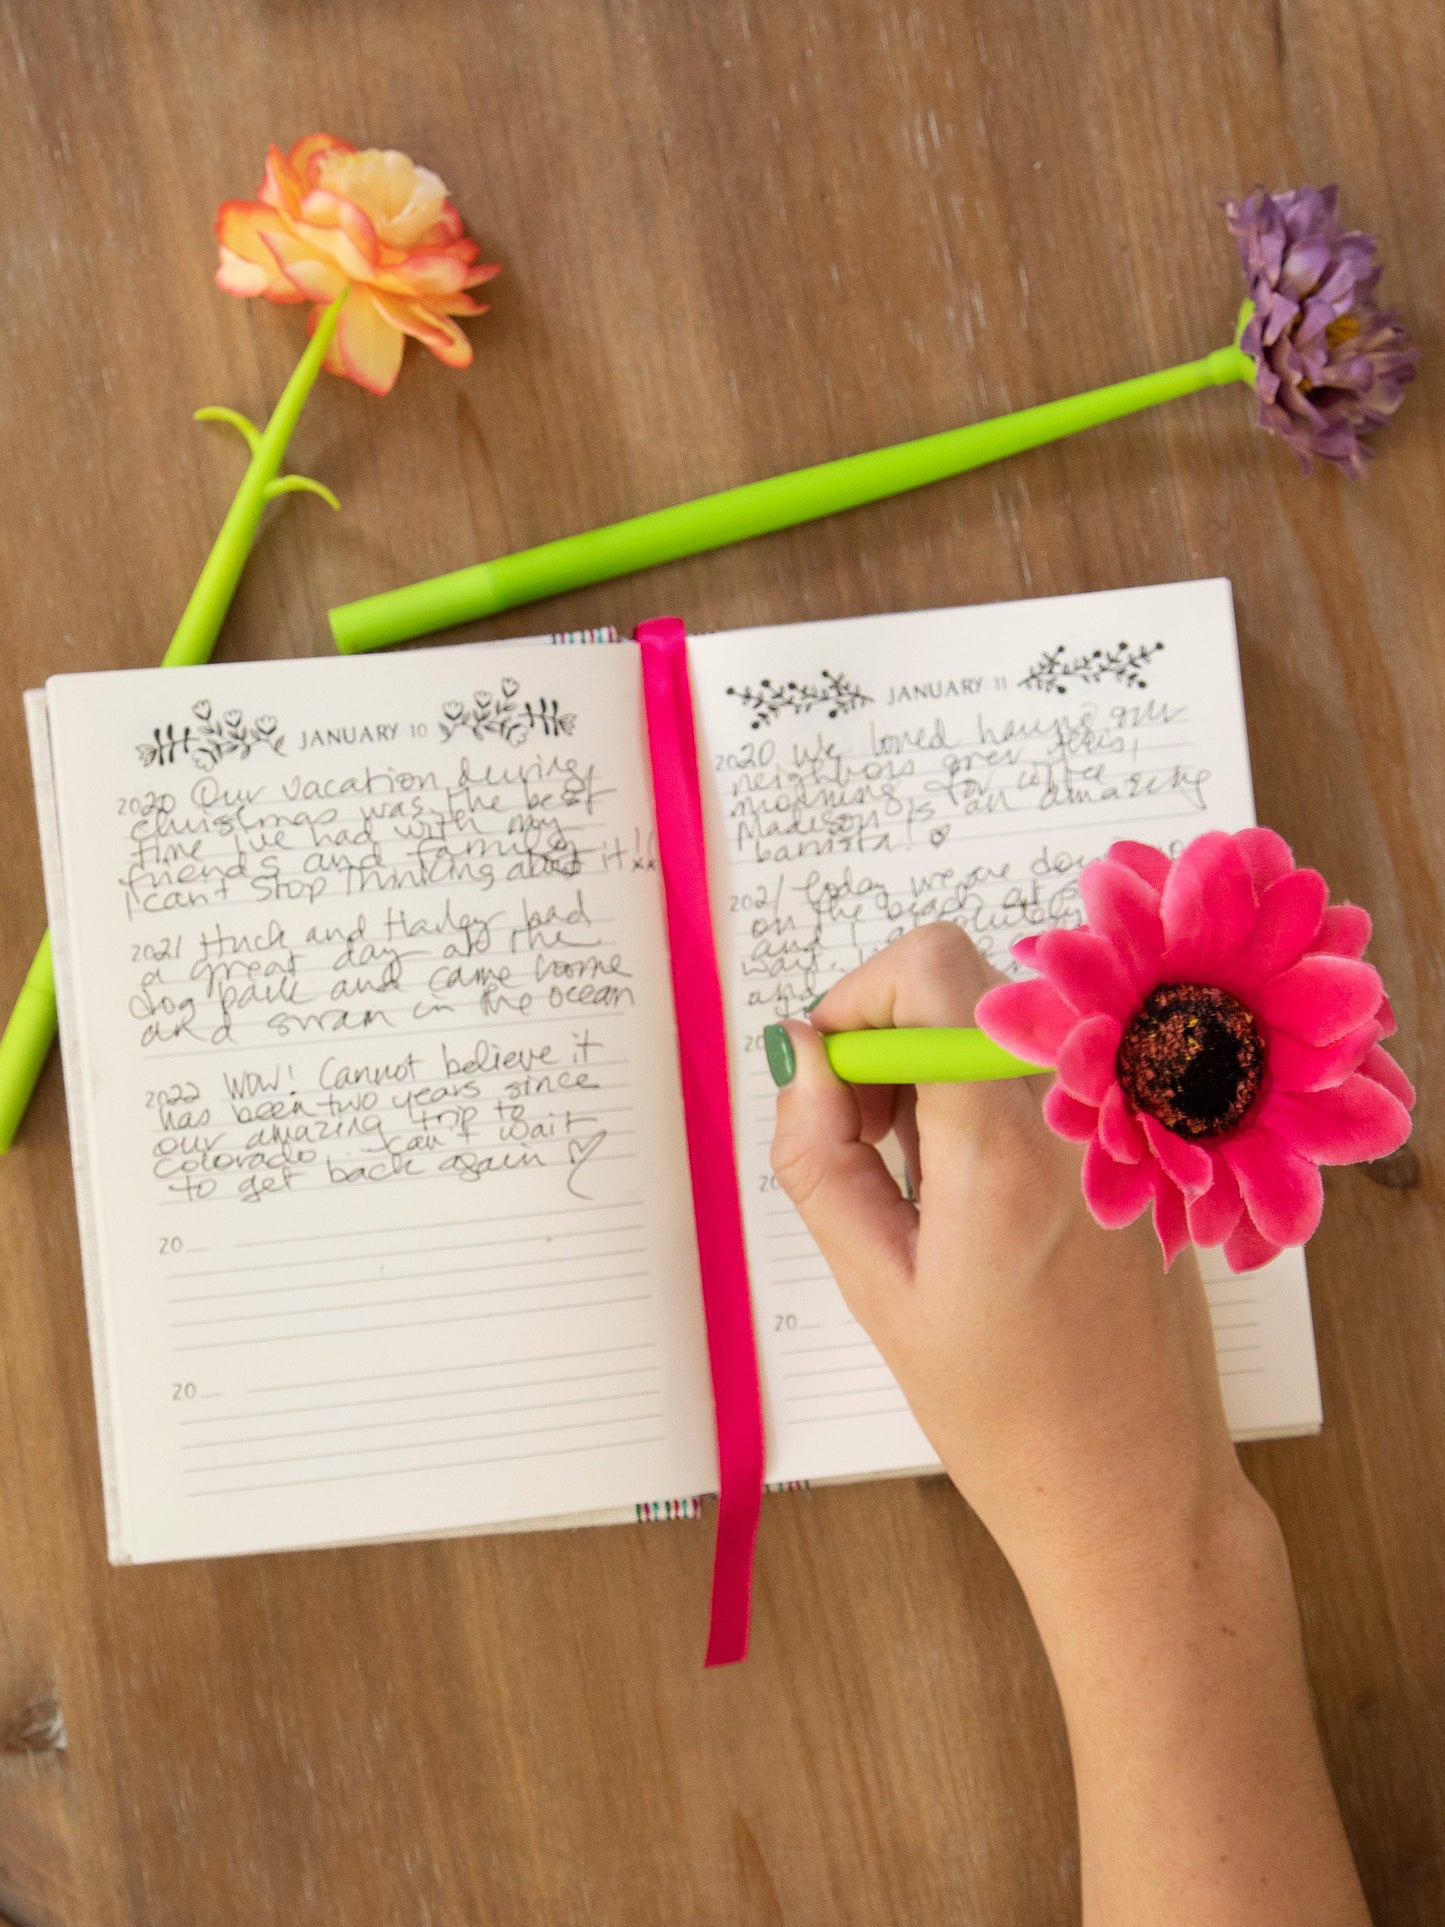 JANUARY 10
2020 Our vacation during
christmas was the best
time I've had with my
friends and family
I can't stop thinking about it!!
2021 Huck and Harley had
a great day at the
dog park and came home
and swam in the ocean
2022 Wow! Cannot believe it
has been two years since
our amazing trip to
colorado. can't wait
to get back again
20__
20__
JANUARY 11
2020 We loved having our
neighbors over this
morning for coffee,
Madison is an amazing
barrista!
2021 Today we are
on the beach at
and I absolutely
wait.
and
20
20
20__